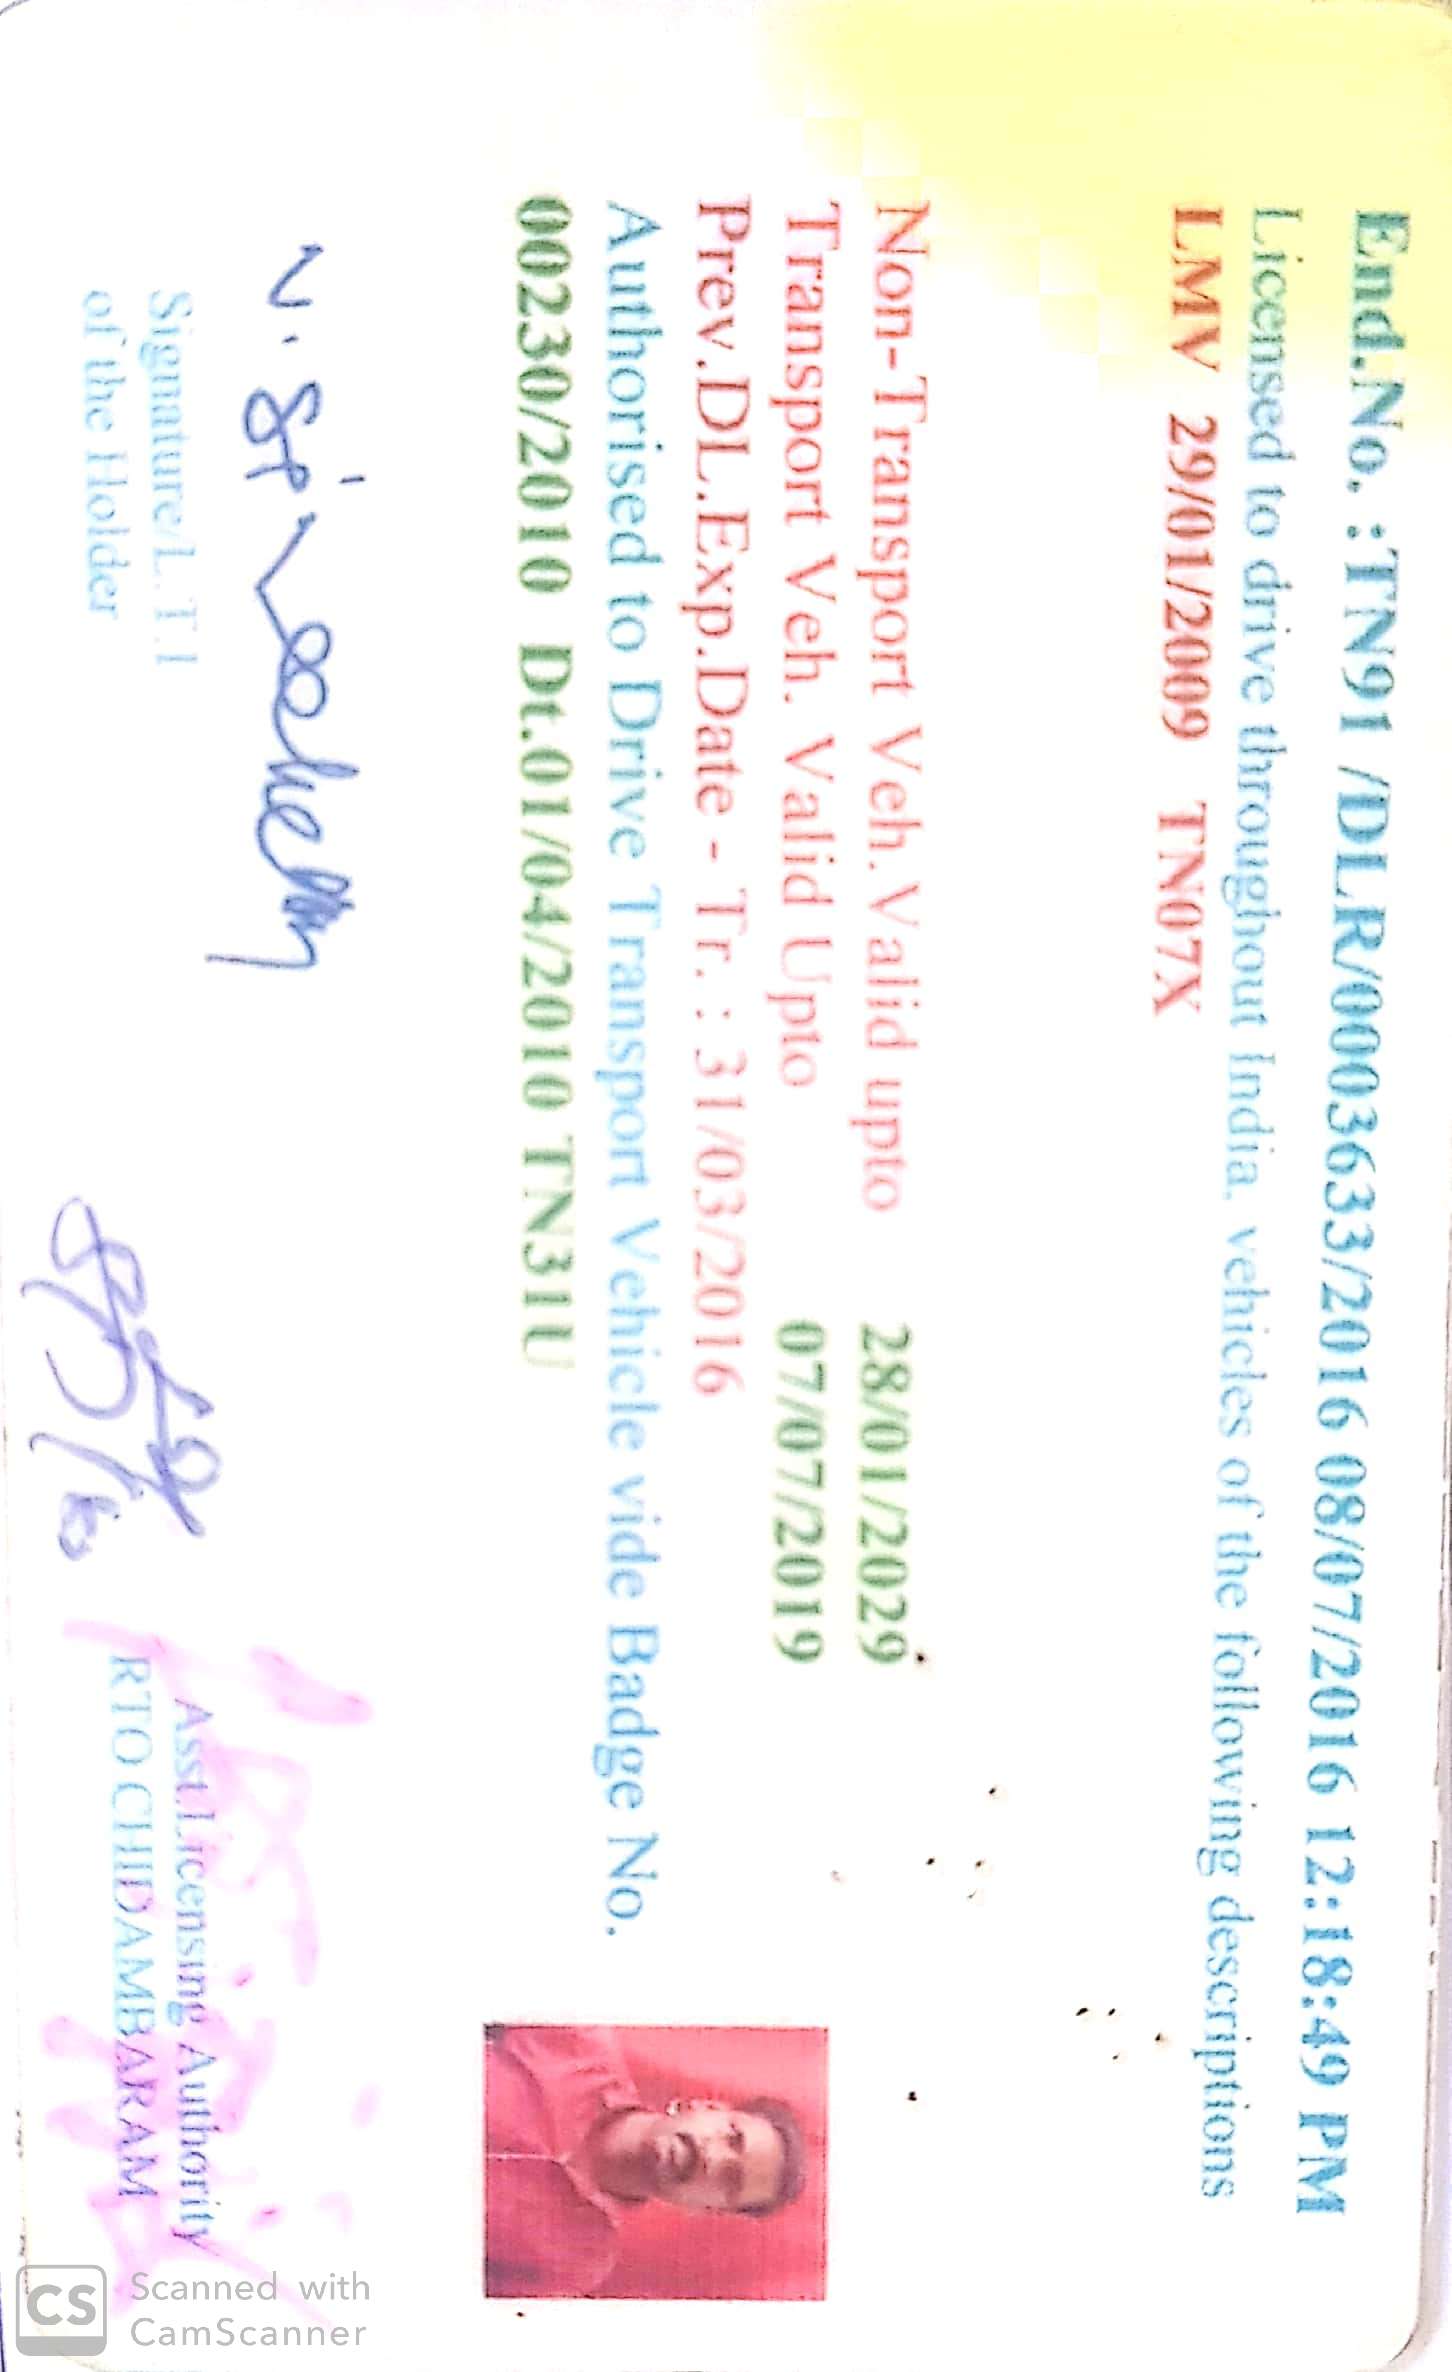 End.No. :TN91 /DLR/0003633/2016 08/07/2016 12:18:49 PM
Licensed to drive throughout India, vehicles of the following descriptions
LMV 29/01/2009 TN07X
Non-Transport Veh.Valid upto 28/01/2029
Transport Veh. Valid Upto 07/07/2019
Prev.DL.Exp.Date - Tr. : 31/03/2016
Authorised to Drive Transport Vehicle vide Badge No.
00230/2010 Dt.01/04/2010 TN31U
Signature/L.T.I
of the Holder
Asst.Licensing Authority
RTO CHIDAMBARAM
CS
Scanned with
CamScanner